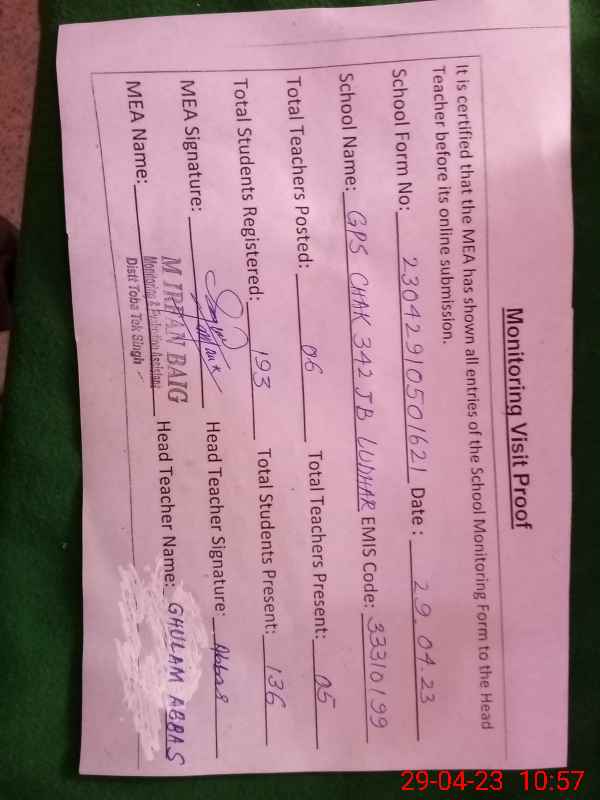 Monitoring Visit Proof
It is certified that the MEA has shown all entries of the School Monitoring Form to the Head
Teacher before its online submission.
School Form No: 23042910501621 Date : 29.04.23
School Name: GPS CHAK 342 JB LUDHAR EMIS Code: 33310199
Total Teachers Posted: 06 Total Teachers Present: 05
Total Students Registered: 193 Total Students Present: 136
MEA Signature: Head Teacher Signature: Abbas
MEA Name: M IRFAN BAIG Head Teacher Name: GHULAM ABBAS
Monitoring & Evaluation Assistant
Distt Toba Tek Singh
29-04-23 10:57